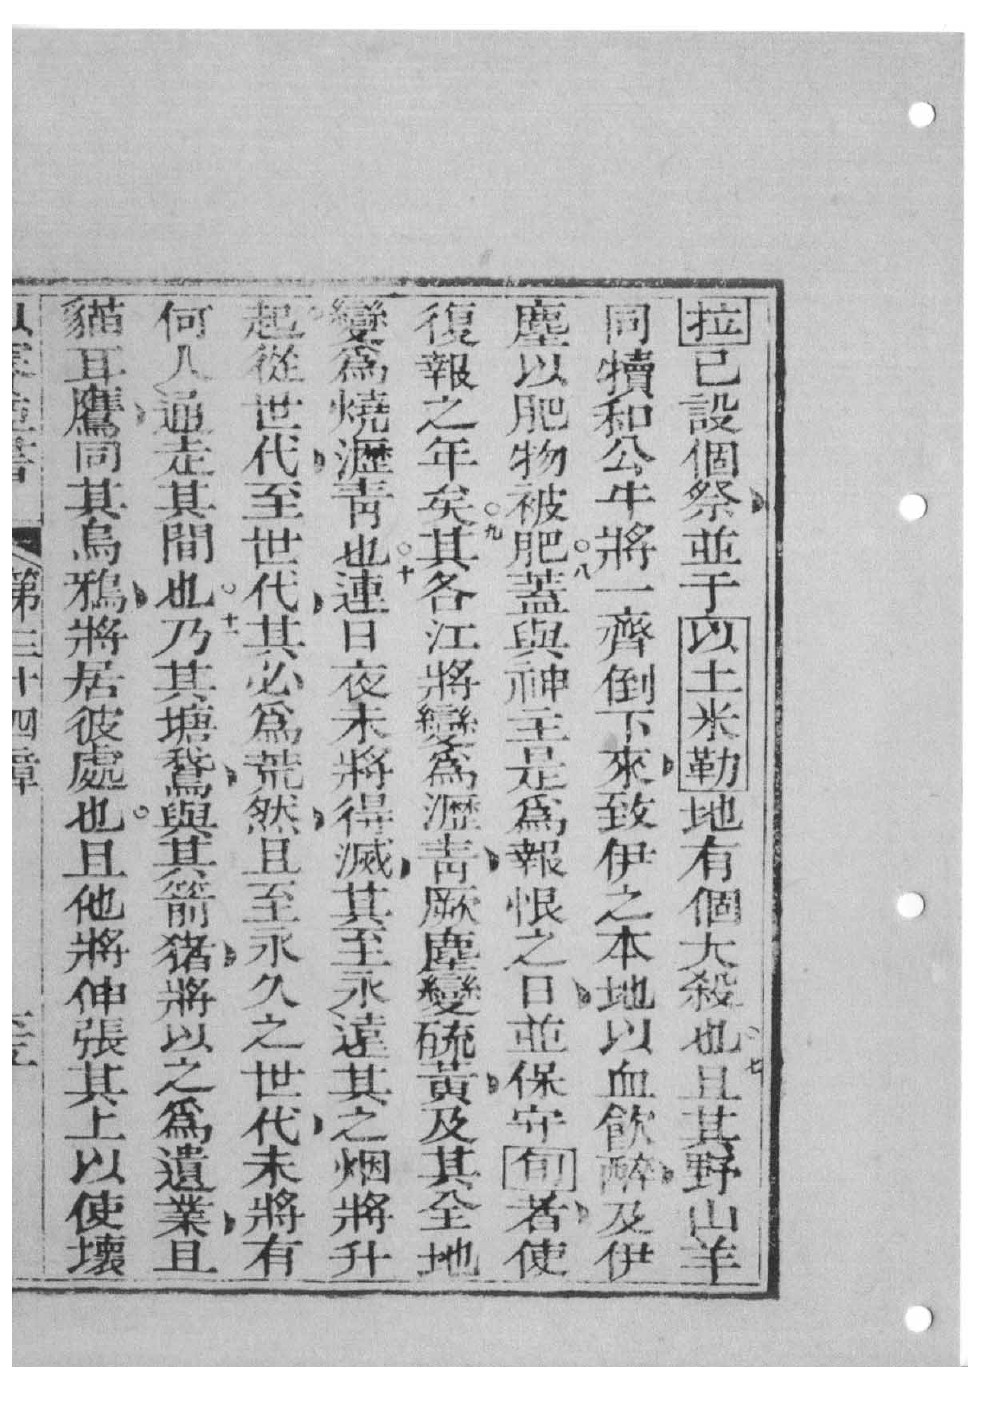 拉已設個祭並于以土米勒地有個大殺也○七且其野山羊
同犢和公牛將一齊倒下來致伊之本地以血飲醉及伊
塵以肥物被肥○八蓋與神主是爲報恨之日並保守旬者使
復報之年矣○九其各江將變爲瀝青厥塵變硫黃及其全地
變爲燒瀝靑也○十連日夜未將得滅其至永遠其之烟將升
起從世代至世代其必爲荒然且至永久之世代未將有
何人通走其間也○十一乃其塘鵞與其箭猪將以之爲遺業且
貓耳鷹同其烏鴉將居彼處也○且他將伸張其上以使壞
第三十四章